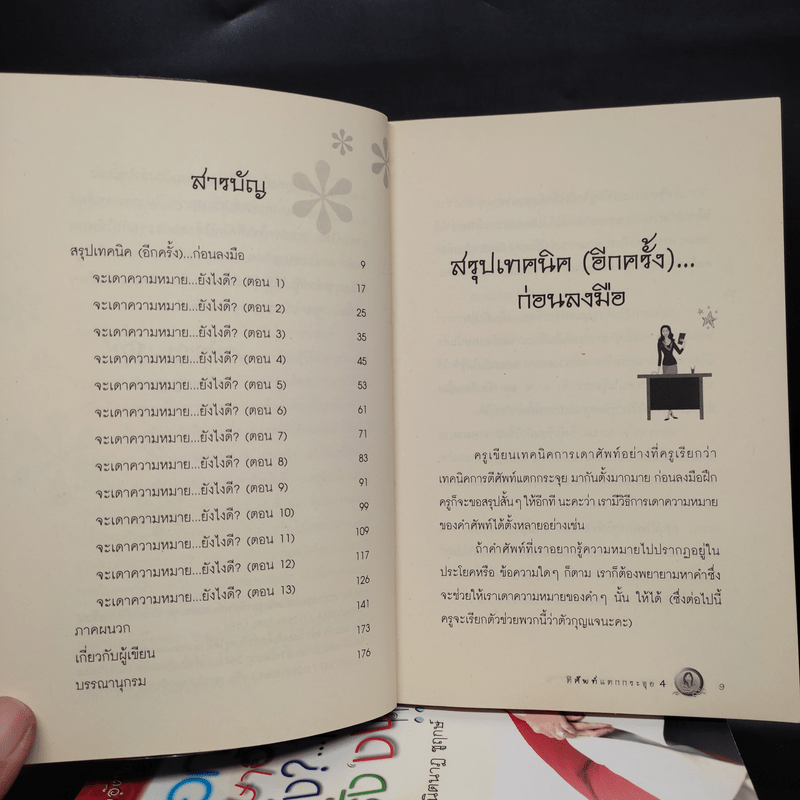 สารบัญ
สรุปเทคนิค (อีกครั้ง)...ก่อนลงมือ 9
จะเดาความหมาย...ยังไงดี? (ตอน 1) 17
จะเดาความหมาย...ยังไงดี? (ตอน 2) 25
จะเดาความหมาย...ยังไงดี? (ตอน 3) 35
จะเดาความหมาย...ยังไงดี? (ตอน 4) 45
จะเดาความหมาย...ยังไงดี? (ตอน 5) 53
จะเดาความหมาย...ยังไงดี? (ตอน 6) 61
จะเดาความหมาย...ยังไงดี? (ตอน 7) 71
จะเดาความหมาย...ยังไงดี? (ตอน 8) 83
จะเดาความหมาย...ยังไงดี? (ตอน 9) 91
จะเดาความหมาย...ยังไงดี? (ตอน 10) 99
จะเดาความหมาย...ยังไงดี? (ตอน 11) 109
จะเดาความหมาย...ยังไงดี? (ตอน 12) 117
จะเดาความหมาย...ยังไงดี? (ตอน 13) 126
ภาคผนวก 141
เกี่ยวกับผู้เขียน 173
บรรณานุกรม 176
สรุปเทคนิค (อีกครั้ง)...
ก่อนลงมือ
ครูเขียนเทคนิคการเดาศัพท์อย่างที่ครูเรียกว่า
เทคนิคการตีศัพท์แตกกระจุย มากันตั้งมากมาย ก่อนลงมือฝึก
ครูก็จะขอสรุปสั้นๆ ให้อีกที นะคะว่า เรามีวิธีการเดาความหมาย
ของคำศัพท์ได้ตั้งหลายอย่างเช่น
ถ้าคำศัพท์ที่เราอยากรู้ความหมายไปปรากฏอยู่ใน
ประโยคหรือ ข้อความใดๆ ก็ตาม เราก็ต้องพยายามหาคำซึ่ง
จะช่วยให้เราเดาความหมายของคำๆ นั้น ให้ได้ (ซึ่งต่อไปนี้
ครูจะเรียกตัวช่วยพวกนี้ว่าตัวกุญแจนะคะ)
ตีศัพท์แตกกระจุย 4 9